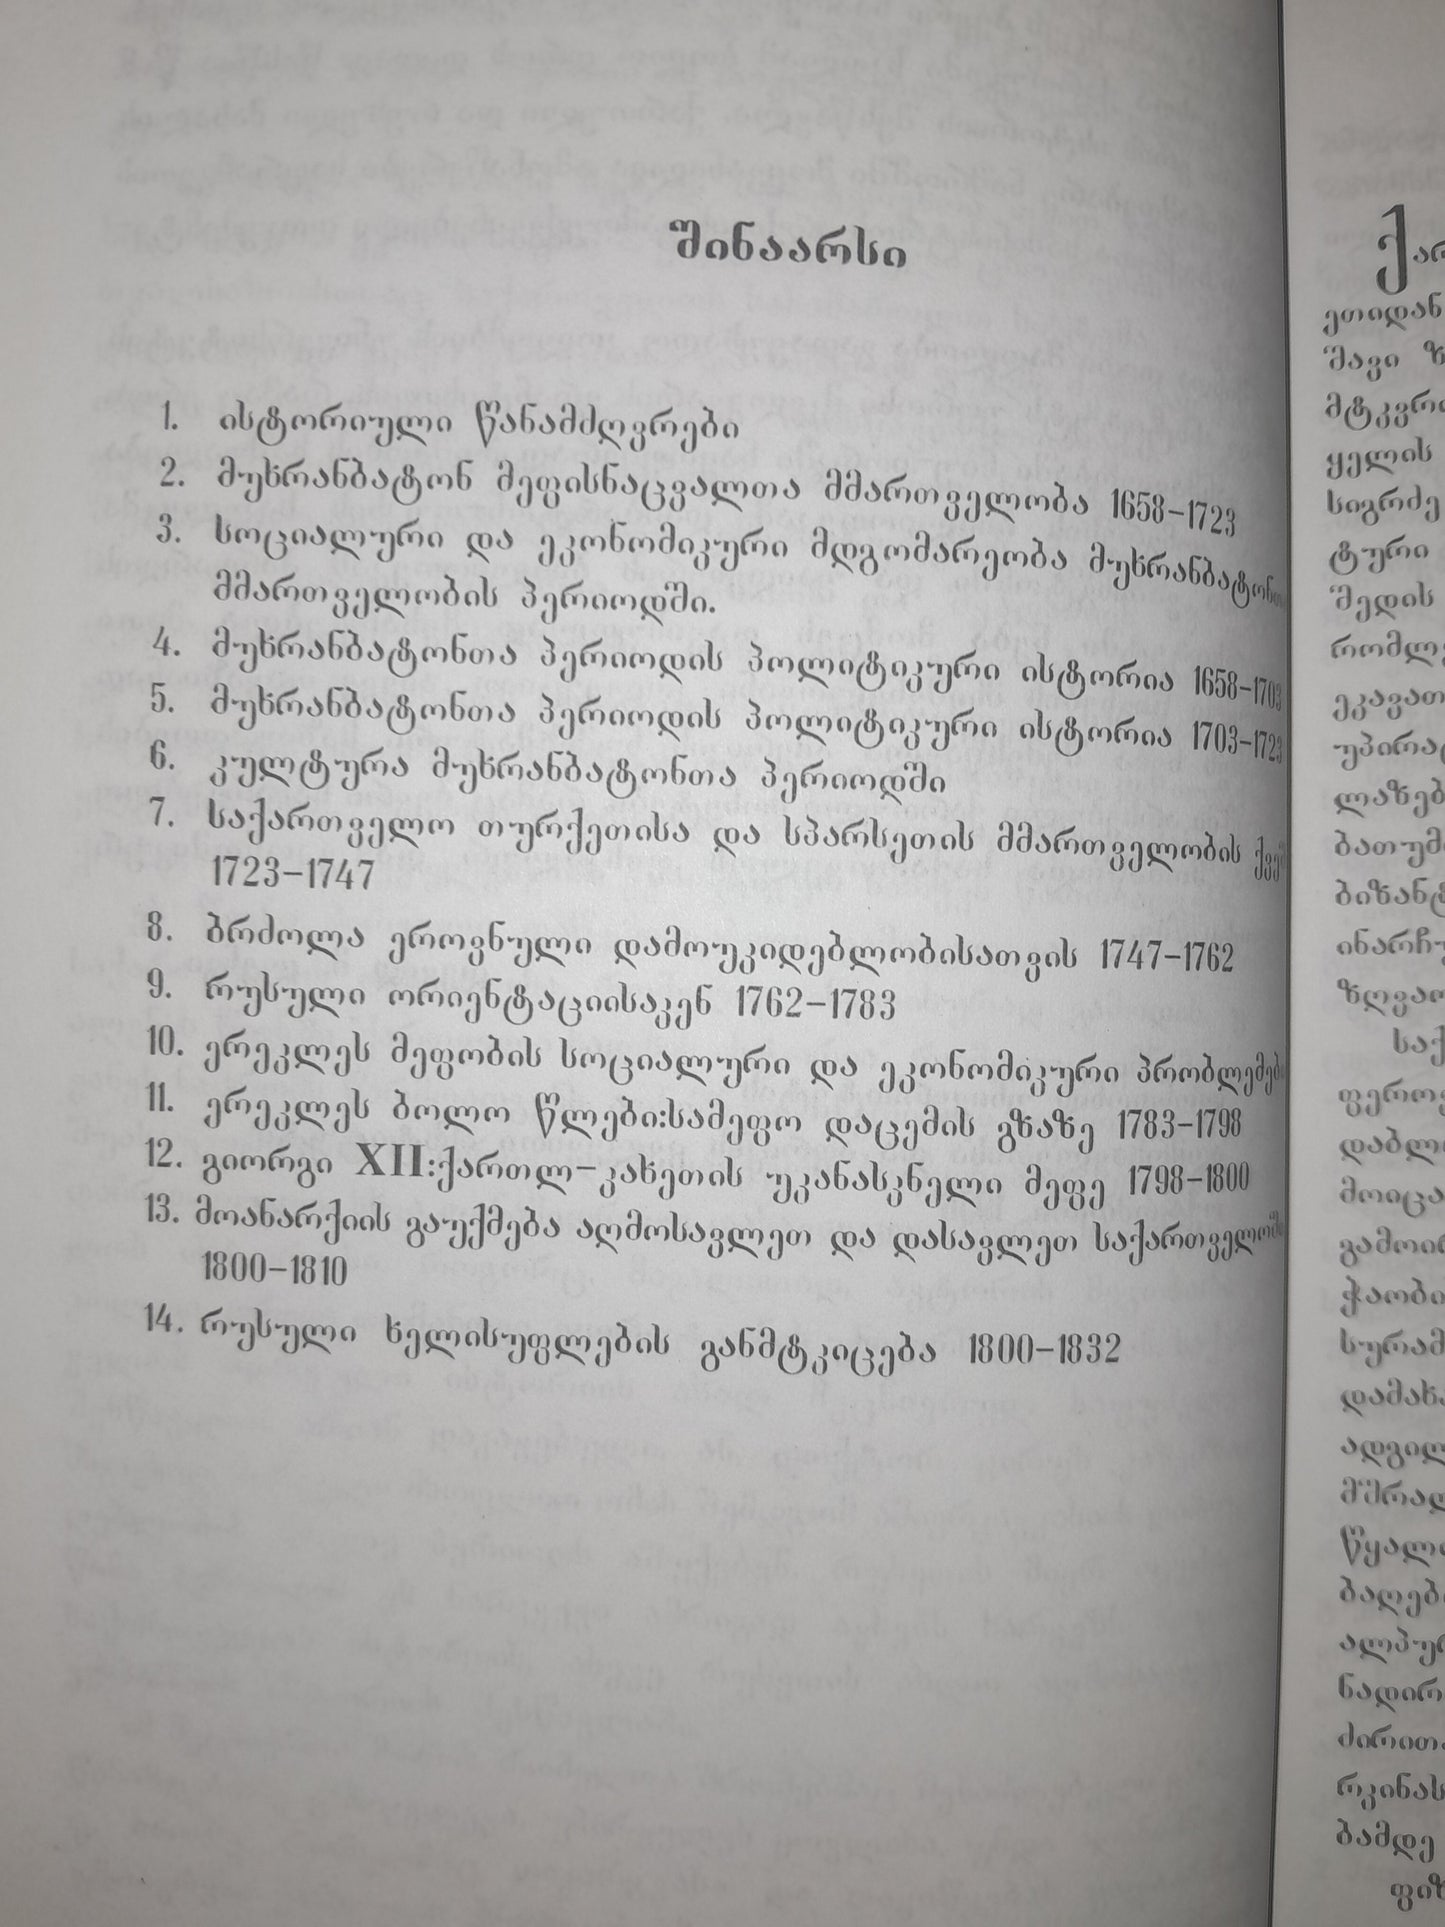 შინაარსი
1. ისტორიული წანამძღვრები
2. მუხრანბატონ მეფისნაცვალთა მმართველობა 1658–1723
3. სოციალური და ეკონომიკური მდგომარეობა მუხრანბატონთა
მმართველობის პერიოდში.
4. მუხრანბატონთა პერიოდის პოლიტიკური ისტორია 1658–1703
5. მუხრანბატონთა პერიოდის პოლიტიკური ისტორია 1703–1723
6. კულტურა მუხრანბატონთა პერიოდში
7. საქართველო თურქეთისა და სპარსეთის მმართველობის ქვეშ
1723–1747
8. ბრძოლა ეროვნული დამოუკიდებლობისათვის 1747–1762
9. რუსული ორიენტაციისაკენ 1762–1783
10. ერეკლეს მეფობის სოციალური და ეკონომიკური პრობლემები
11. ერეკლეს ბოლო წლები:სამეფო დაცემის გზაზე 1783–1798
12. გიორგი XII:ქართლ–კახეთის უკანასკნელი მეფე 1798–1800
13. მოანარქიის გაუქმება აღმოსავლეთ და დასავლეთ საქართველოში
1800–1810
14. რუსული ხელისუფლების განმტკიცება 1800–1832
ქარ
ეთიდან
შავი
მტკვრი
ყელის
სიგრძე
ტური
შედის
რომლ
ეკავათ
უპირატ
ლაზებ
ბათუმ
ბიზანტ
ინარჩუ
ზღვაო
საქ
ფერო
დაბლ
მოიცა
გამოირ
ჭაობი
სურამ
დამახა
ადგილ
მშრალ
წყალ
ბაღებ
ალპურ
ნადირ
ძირითა
რკინას
ბამდე
ფიზ